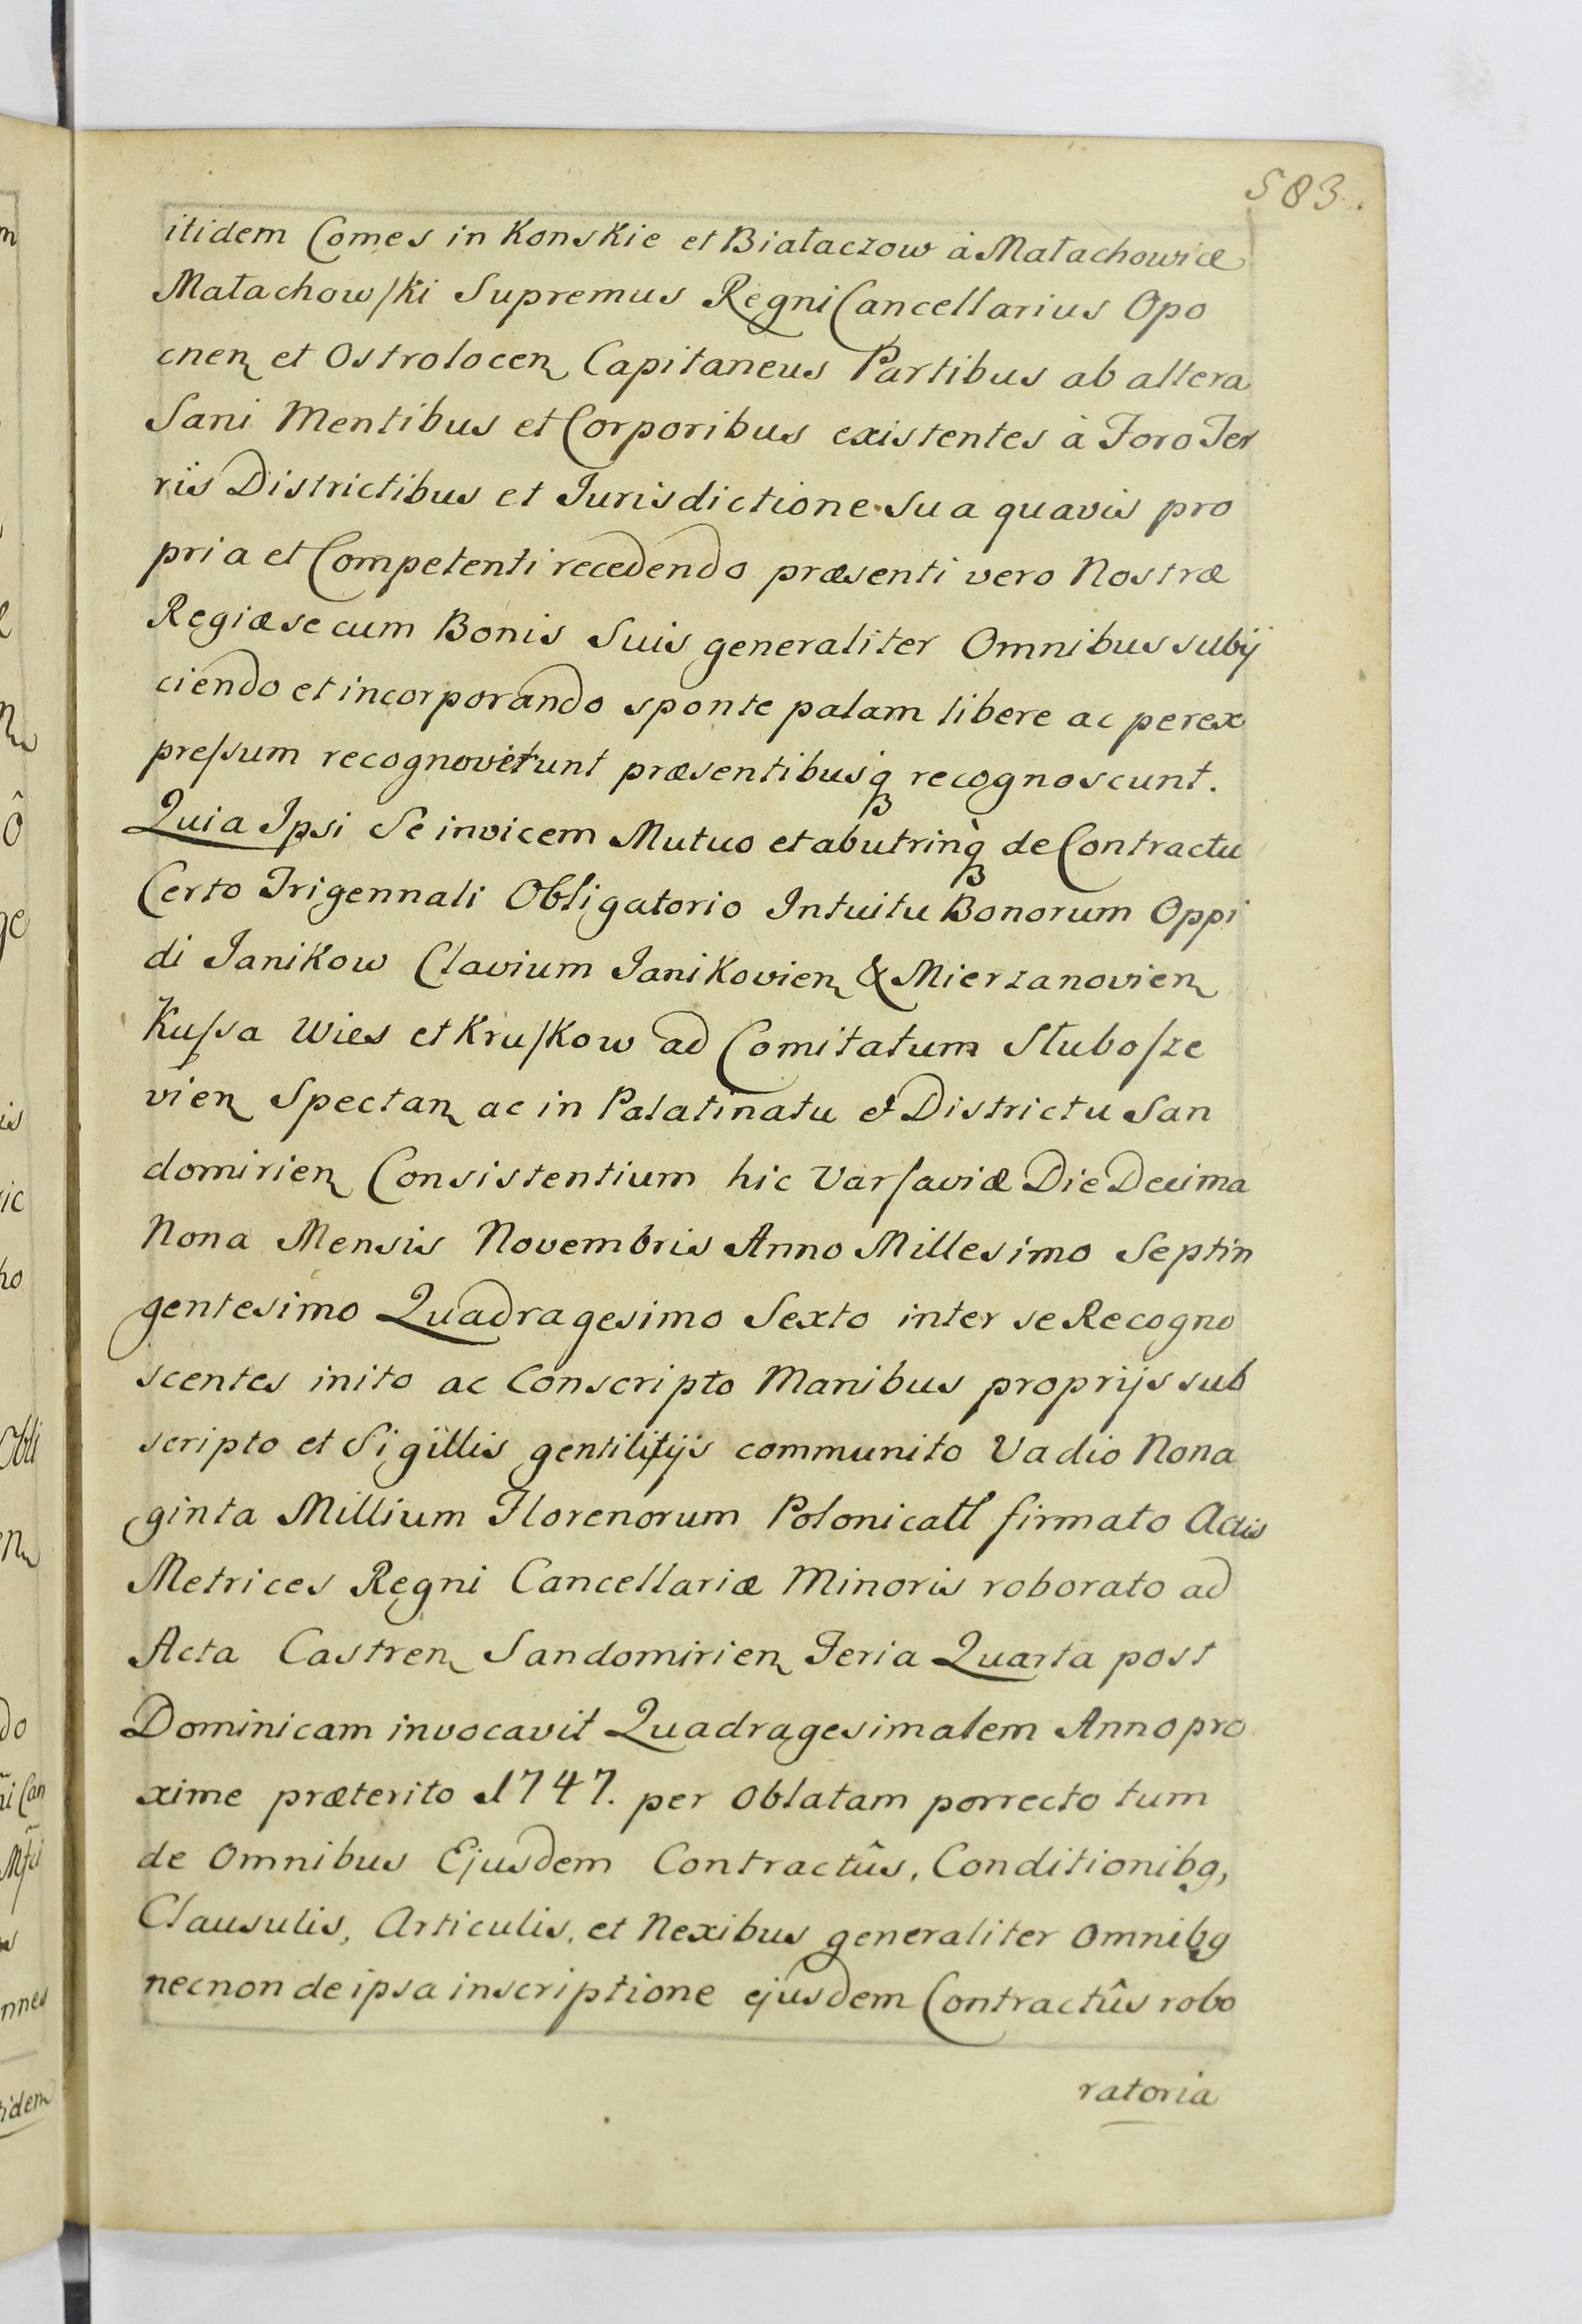 583.
itidem Comes in Konskie et Białaczow à Małachowice
Małachowski Supremus Regni Cancellarius Opo
cnen et Ostrolocen Capitaneus Partibus ab altera
Sani Mentibus et Corporibus existentes à Foro Ter
riis Districtibus et Jurisdictione Sua quavis pro
pria et Competenti recedendo præsenti vero Nostræ
Regiæ se cum Bonis Suis generaliter Omnibus subij
ciendo et incorporando sponte palam libere ac perex
pressum recognoverunt præsentibusq recognoscunt.
Quia Ipsi Se invicem Mutuo et abutrinq de Contractu
Certo Trigennali Obligatorio Intuitu Bonorum Oppi
di Janikow Clavium Janikovien & Mierzanovien
Kussa Wies et Kruskow ad Comitatum Słubosze
vien Spectan ac in Palatinatu et Districtu San
domirien Consistentium hic Varsaviæ Die Decima
Nona Mensis Novembris Anno Millesimo Septin
gentesimo Quadragesimo Sexto inter se Recogno
scentes inito ac Conscripto Manibus proprijs sub
scripto et Sigillis gentilitijs communito Vadio Nona
ginta Millium Florenorum Polonicatt firmato Actis
Metrices Regni Cancellariæ Minoris roborato ad
Acta Castren Sandomirien Feria Quarta post
Dominicam invocavit Quadragesimalem Anno pro
xime præterito 1747. per Oblatam porrecto tum
de Omnibus Ejusdem Contractûs, Conditionibg,
Clausulis, Articulis, et Nexibus generaliter Omnibg
necnon de ipsa inscriptione ejusdem Contractûs robo
ratoria